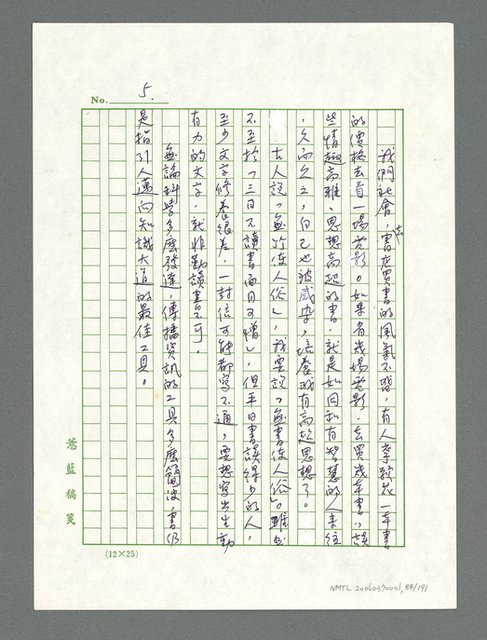 No. 5.
我們社會,去書店買書的風氣不盛,有人寧願花一本書
的價格去看一場電影。如果省幾場電影,去買幾本書,讀
些情趣高雅、思想高超的書,就是如同和有智慧的人來往
,久而久之,自己也被感染,培養成有高超思想了。
古人說「無竹使人俗」,我要說「無書使人俗」。雖然
不至於「三日不讀書面目可憎」,但平日書讀得少的人,
至少文字修養很差,一封信可能都寫不通,要想寫出生動
有力的文字,就非勤讀書不可。
無論科學多麼發達,傳播資訊的工具多麼簡便,書仍
是指引人邁向知識大道的最佳工具。
意藍稿箋
(12×25)
NMTL 20060370001,88/191